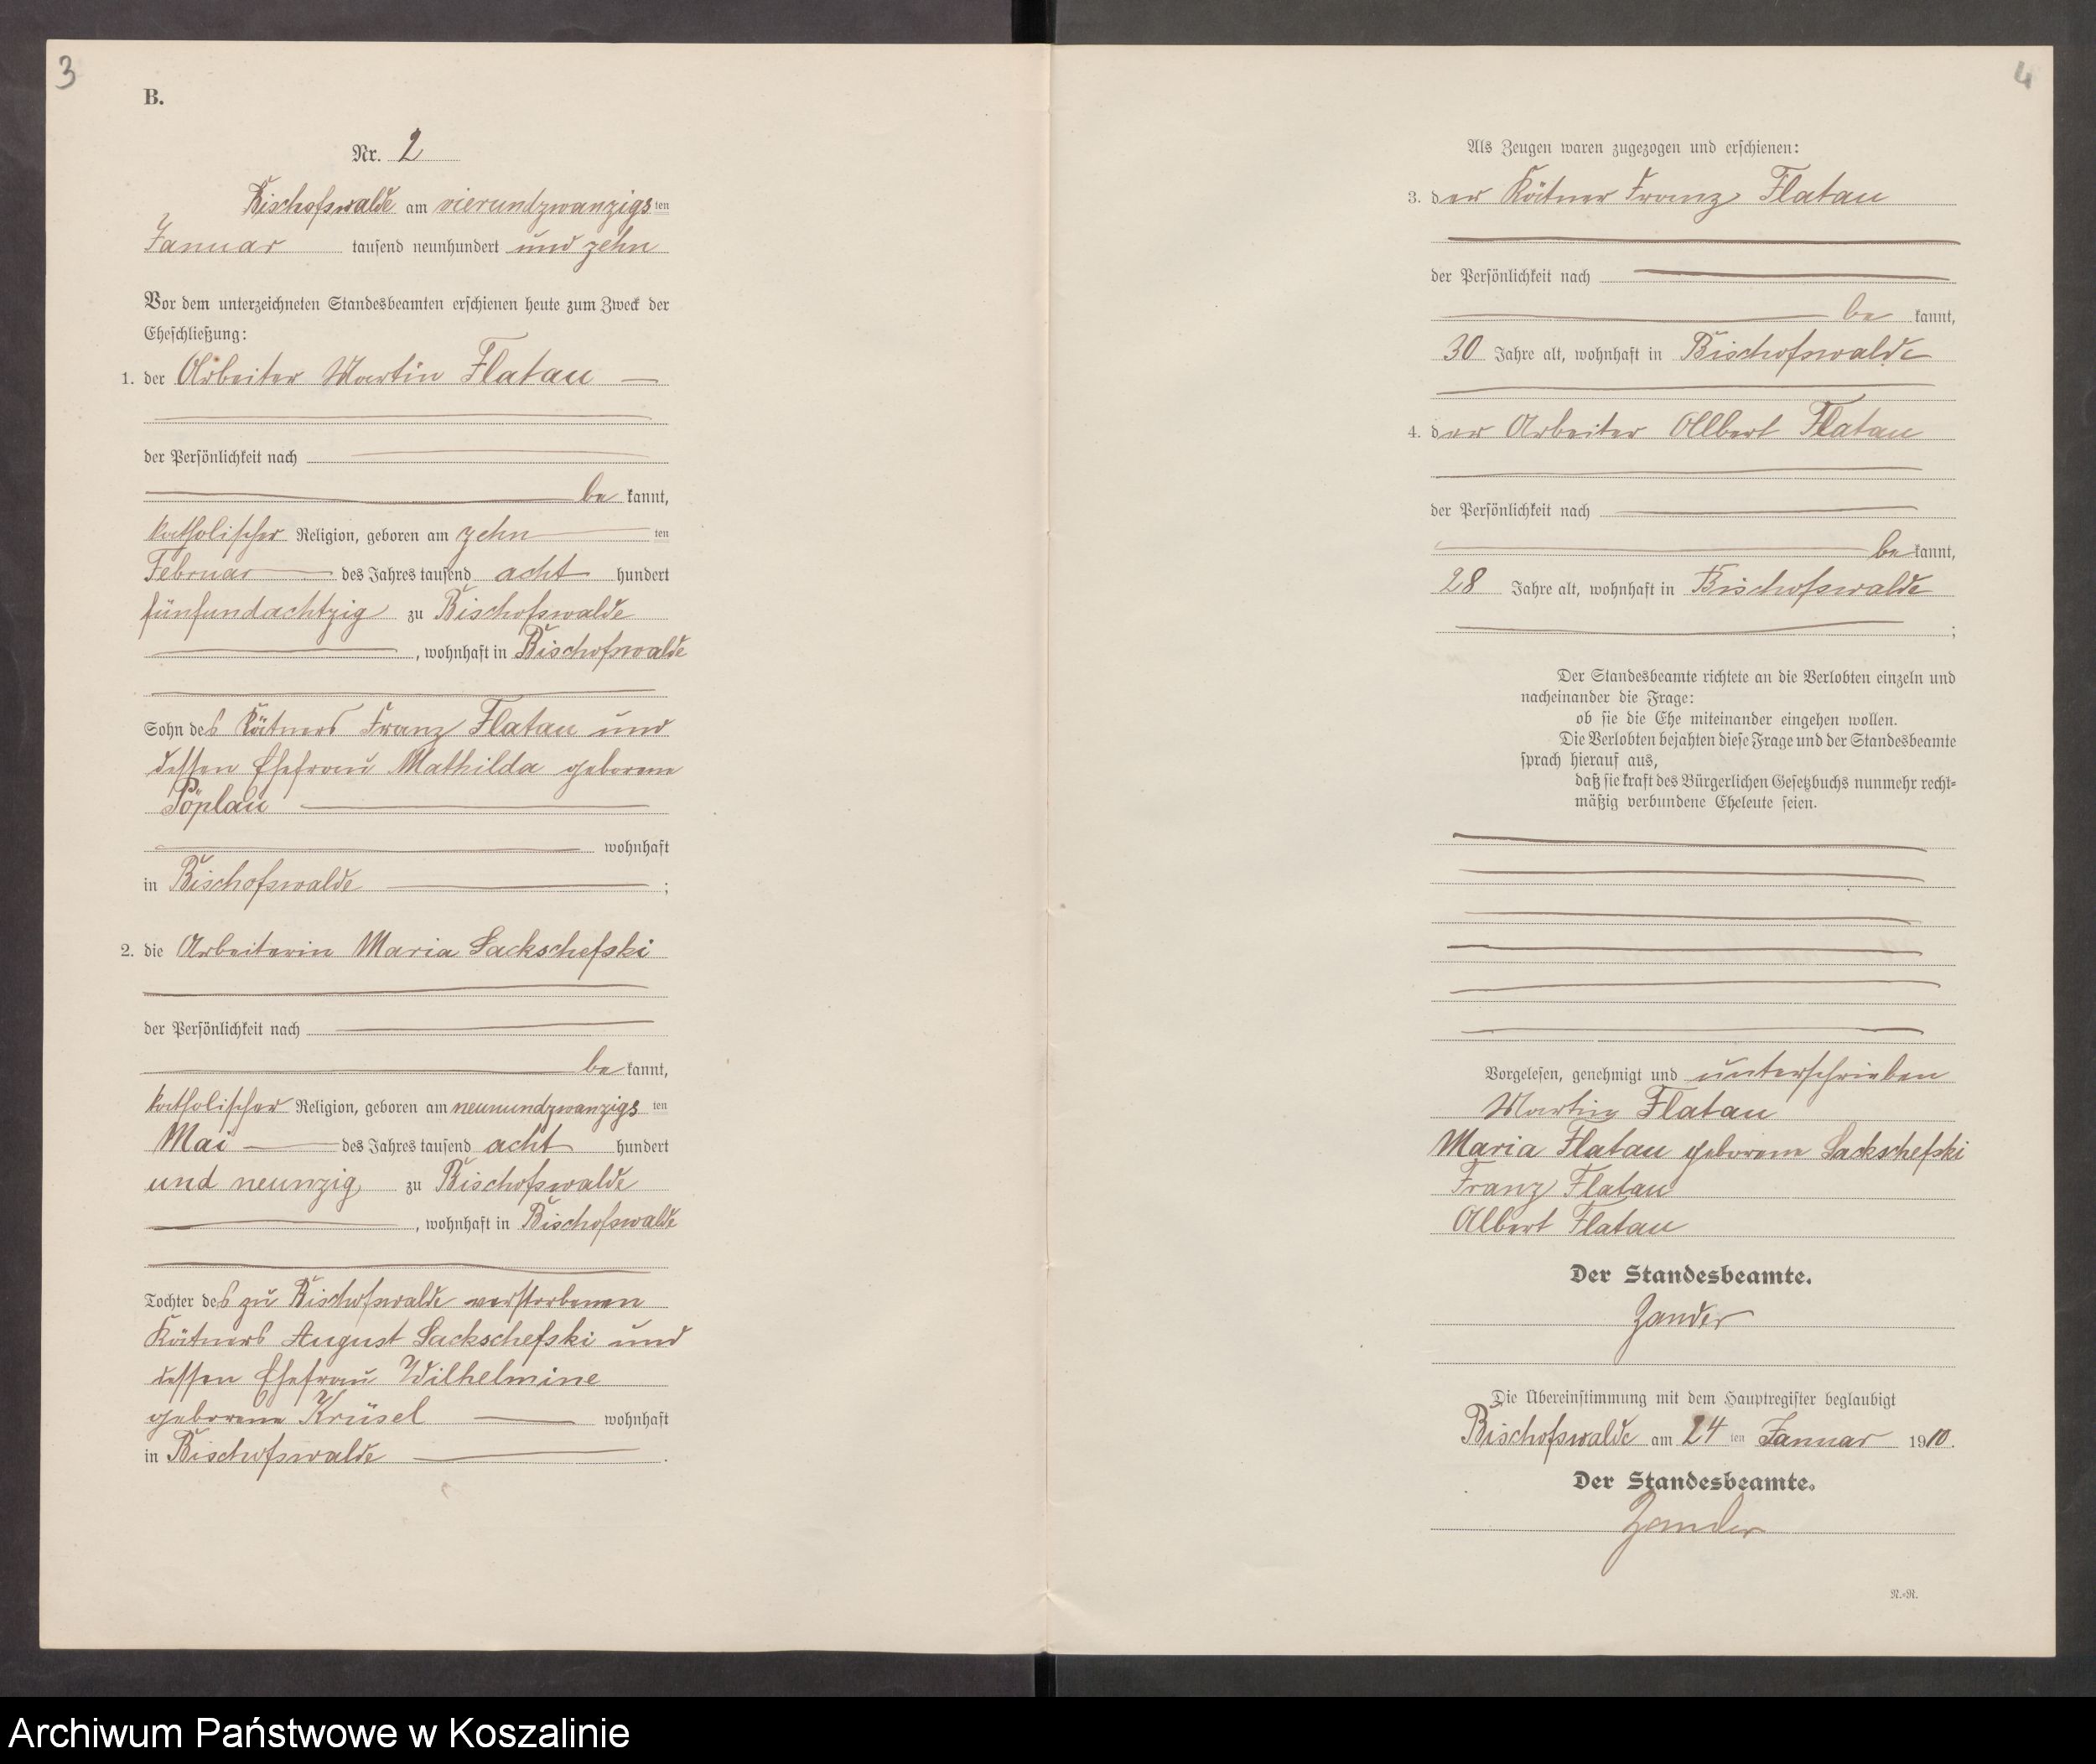 3
B.
Nr. 2
Bischofswalde am vierundzwanzigsten
Januar tausend neunhundert und zehn
Vor dem unterzeichneten Standesbeamten erschienen heute zum Zweck der
Eheschließung:
1. der Arbeiter Martin Flatau
der Persönlichkeit nach
bekannt,
katholischer Religion, geboren am zehnten
Februar des Jahres tausend acht hundert
fünfundachtzig zu Bischofswalde
, wohnhaft in Bischofswalde
Sohn des Kätners Franz Flatau und
dessen Ehefrau Mathilda geborene
Pöplau
wohnhaft
in Bischofswalde ;
2. die Arbeiterin Maria Sackschefski
der Persönlichkeit nach
bekannt,
katholischer Religion, geboren am neunundzwanzigsten
Mai des Jahres tausend acht hundert
und neunzig zu Bischofswalde
, wohnhaft in Bischofswalde
Tochter des zu Bischofswalde verstorbenen
Kätners August Sackschefski und
dessen Ehefrau Wilhelmine
geborene Krüsel wohnhaft
in Bischofswalde .
4
Als Zeugen waren zugezogen und erschienen:
3. der Kätner Franz Flatau
der Persönlichkeit nach
bekannt,
30 Jahre alt, wohnhaft in Bischofswalde
4. der Arbeiter Albert Flatau
der Persönlichkeit nach
bekannt,
28 Jahre alt, wohnhaft in Bischofswalde
;
Der Standesbeamte richtete an die Verlobten einzeln und
nacheinander die Frage:
ob sie die Ehe miteinander eingehen wollen.
Die Verlobten bejahten diese Frage und der Standesbeamte
sprach hierauf aus,
daß sie kraft des Bürgerlichen Gesetzbuchs nunmehr recht-
mäßig verbundene Eheleute seien.
Vorgelesen, genehmigt und unterschrieben
Martin Flatau
Maria Flatau geborene Sackschefski
Franz Flatau
Albert Flatau
Der Standesbeamte.
Zander
Die Übereinstimmung mit dem Hauptregister beglaubigt
Bischofswalde am 24ten Januar 1910.
Der Standesbeamte.
Zander
N.-R.
Archiwum Państwowe w Koszalinie